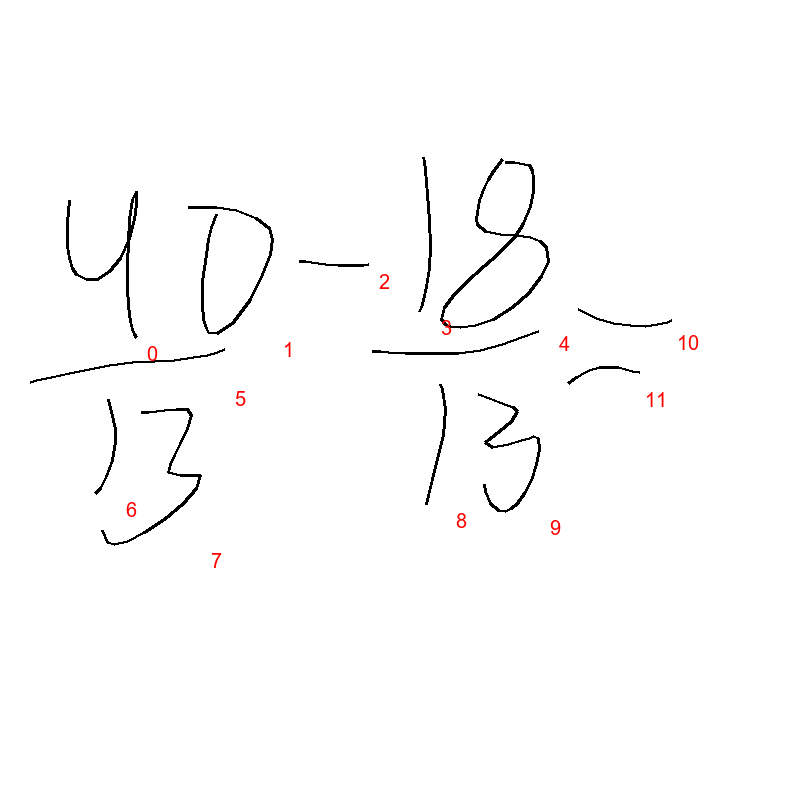 40/13 - 18/13 =
0 1 2 3 4 5 6 7 8 9 10 11